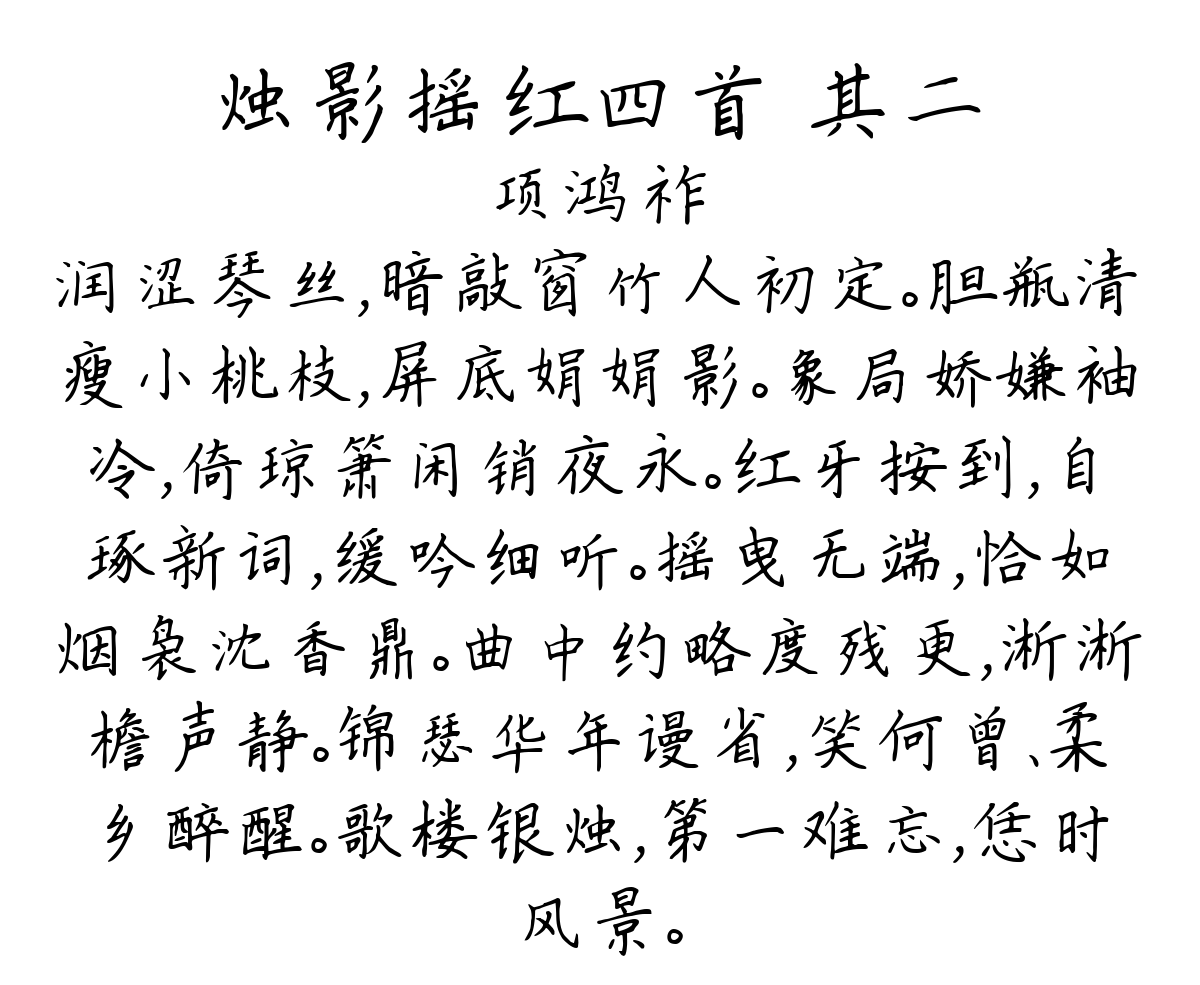 烛影摇红四首 其二
项鸿祚
润涩琴丝,暗敲窗竹人初定。胆瓶清
瘦小桃枝,屏底娟娟影。象局娇嫌袖
冷,倚琼箫闲销夜永。红牙按到,自
琢新词,缓吟细听。摇曳无端,恰如
烟袅沈香鼎。曲中约略度残更,淅淅
檐声静。锦瑟华年谩省,笑何曾、柔
乡醉醒。歌楼银烛,第一难忘,恁时
风景。